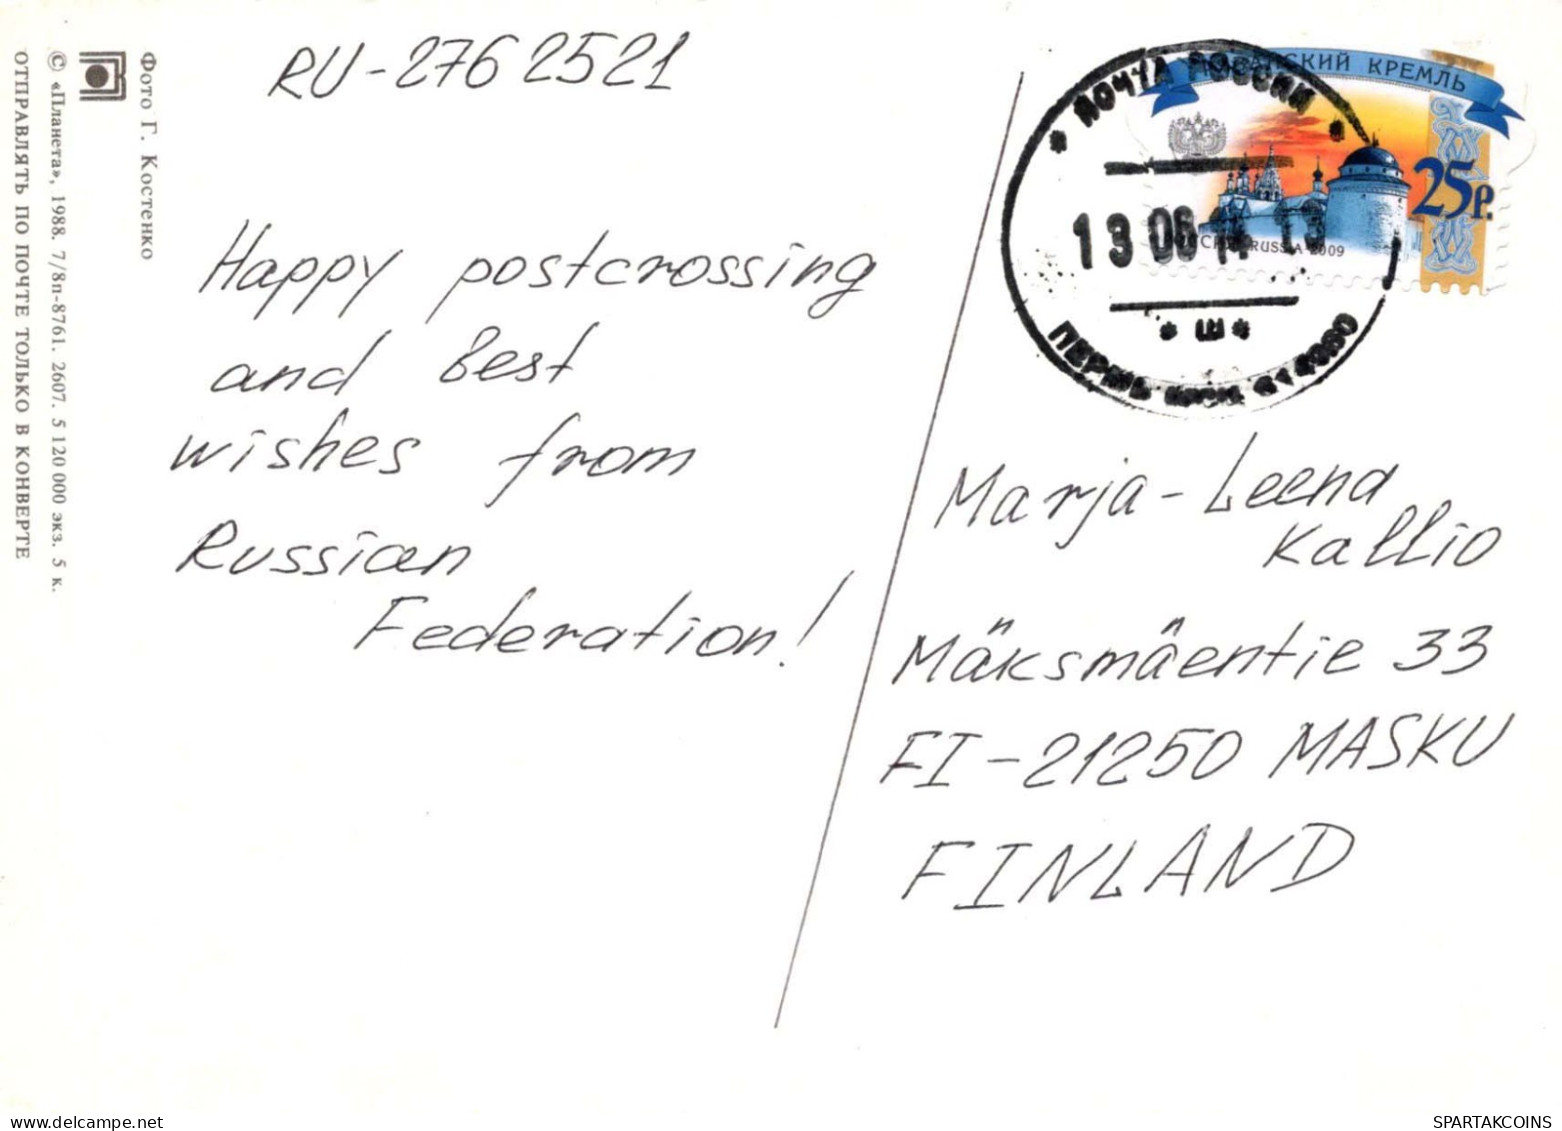 RU-2762521
Happy postcrossing
and best
wishes from
Russian
Federation!
Marja-Leena
Kallio
Mäksmäentie 33
FI-21250 MASKU
FINLAND
КРЕМЛЬ
25р.
RUSSIA 2009
* ПОЧТА РОССИИ *
13 06 14 13
* Ш *
ПЕРМЬ
Фото Г. Костенко
© «Планета», 1988. 7/8п-8761. 2607. 5 120 000 экз. 5 к.
ОТПРАВЛЯТЬ ПО ПОЧТЕ ТОЛЬКО В КОНВЕРТЕ
www.delcampe.net
SPARTAKCOINS